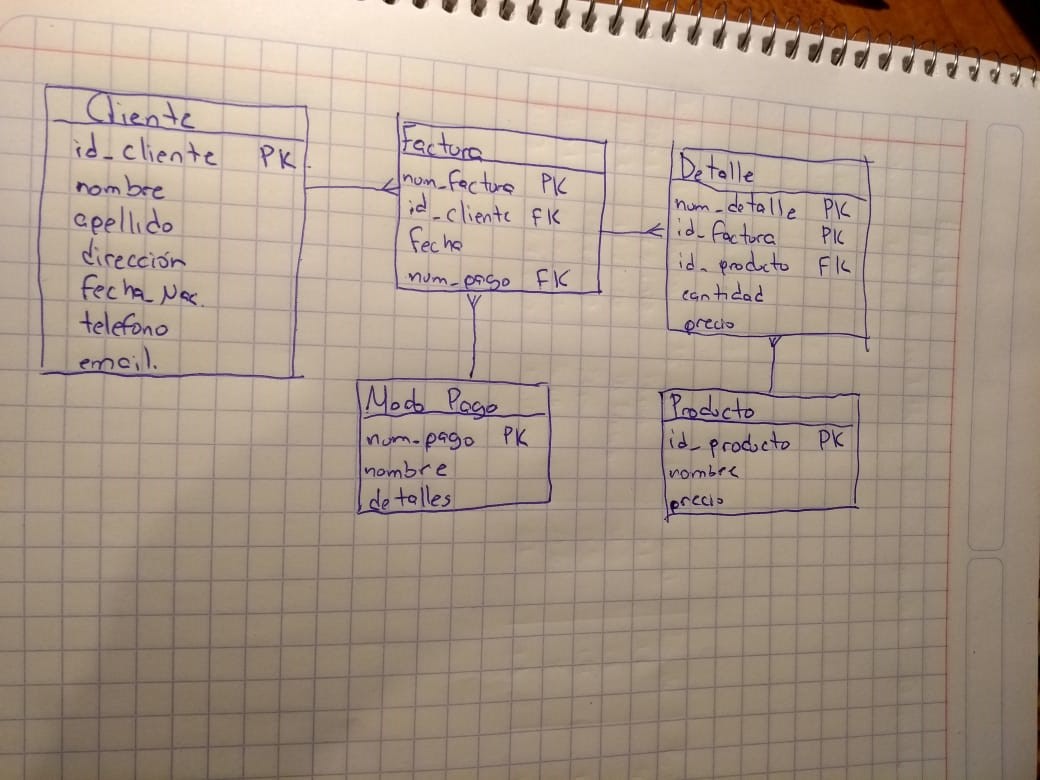 Cliente
id_cliente PK
nombre
apellido
dirección
fecha_Nac.
telefono
email.
Factura
num_factura PK
id_cliente FK
fecha
num_pago FK
Detalle
num_detalle PK
id_factura PK
id_producto FK
cantidad
precio
Modo Pago
num_pago PK
nombre
detalles
Producto
id_producto PK
nombre
precio